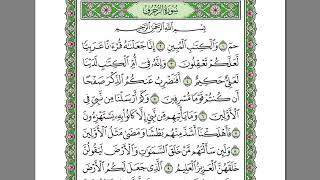 سُورَةُ الزُّخْرُفِ
بِسْمِ اللَّهِ الرَّحْمَٰنِ الرَّحِيمِ
حمٓ ۝١ وَٱلْكِتَٰبِ ٱلْمُبِينِ ۝٢ إِنَّا جَعَلْنَٰهُ قُرْءَٰنًا عَرَبِيًّا
لَّعَلَّكُمْ تَعْقِلُونَ ۝٣ وَإِنَّهُۥ فِىٓ أُمِّ ٱلْكِتَٰبِ لَدَيْنَا
لَعَلِىٌّ حَكِيمٌ ۝٤ أَفَنَضْرِبُ عَنكُمُ ٱلذِّكْرَ صَفْحًا
أَن كُنتُمْ قَوْمًا مُّسْرِفِينَ ۝٥ وَكَمْ أَرْسَلْنَا مِن نَّبِىٍّ فِى
ٱلْأَوَّلِينَ ۝٦ وَمَا يَأْتِيهِم مِّن نَّبِىٍّ إِلَّا كَانُوا۟ بِهِۦ يَسْتَهْزِءُونَ
۝٧ فَأَهْلَكْنَآ أَشَدَّ مِنْهُم بَطْشًا وَمَضَىٰ مَثَلُ ٱلْأَوَّلِينَ
۝٨ وَلَئِن سَأَلْتَهُم مَّنْ خَلَقَ ٱلسَّمَٰوَٰتِ وَٱلْأَرْضَ لَيَقُولُنَّ
خَلَقَهُنَّ ٱلْعَزِيزُ ٱلْعَلِيمُ ۝٩ ٱلَّذِى جَعَلَ لَكُمُ ٱلْأَرْضَ